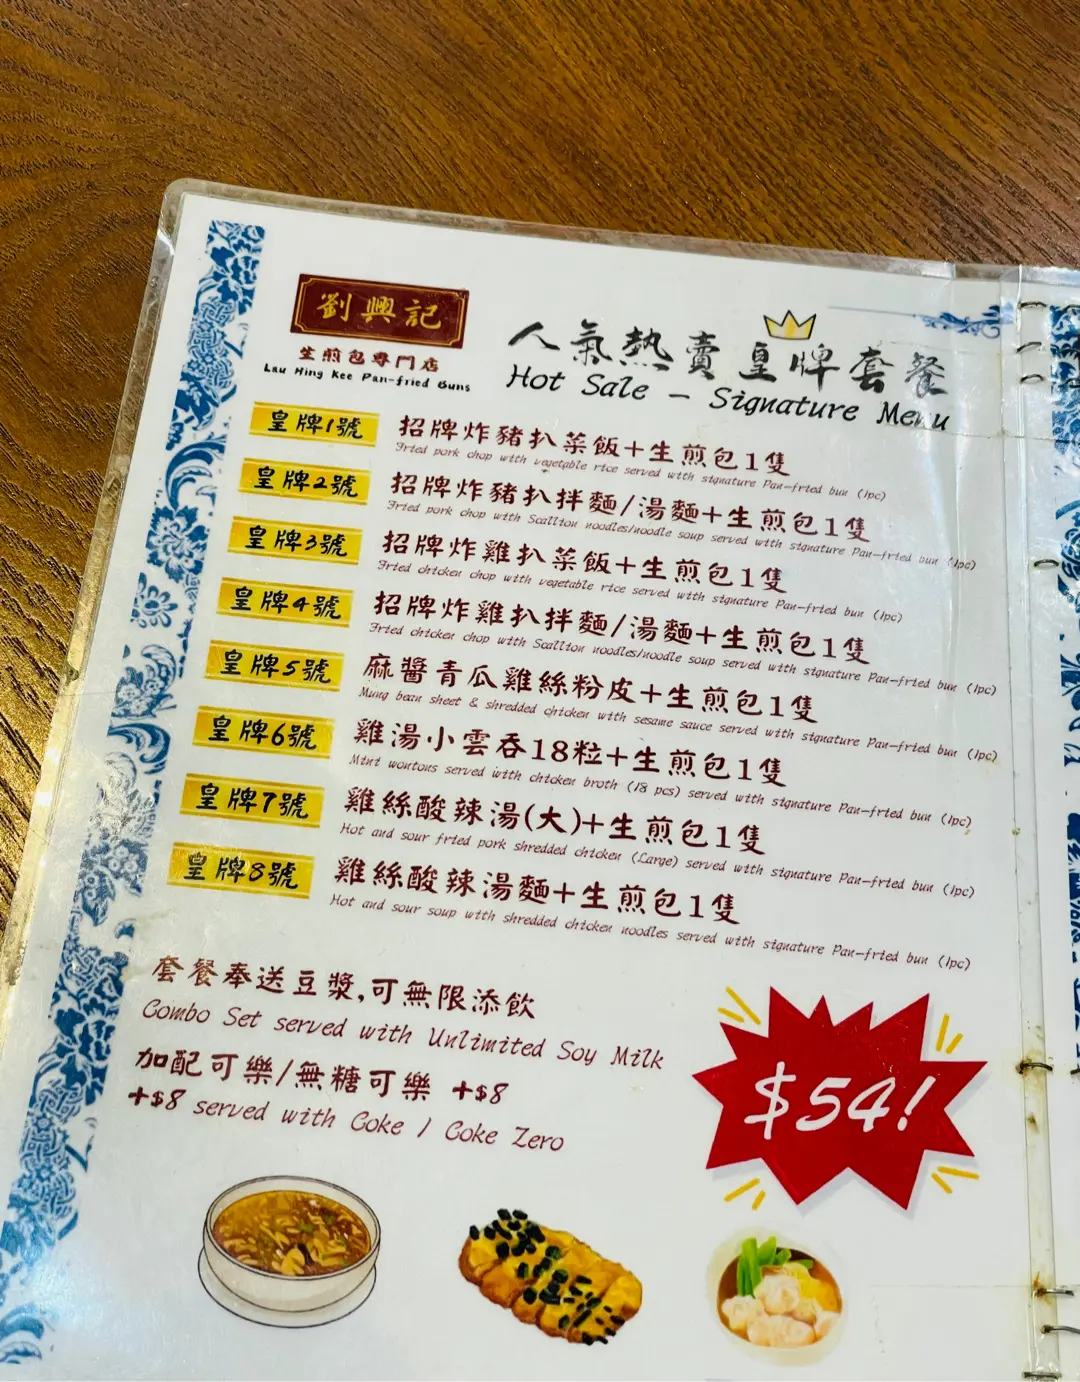 劉興記
生煎包專門店
Lau Hing Kee Pan-fried Buns
人氣熱賣皇牌套餐
Hot Sale - Signature Menu
皇牌1號 招牌炸豬扒菜飯+生煎包1隻
Fried pork chop with vegetable rice served with signature Pan-fried bun (1pc)
皇牌2號 招牌炸豬扒拌麵/湯麵+生煎包1隻
Fried pork chop with Scallion noodles/noodle soup served with signature Pan-fried bun (1pc)
皇牌3號 招牌炸雞扒菜飯+生煎包1隻
Fried chicken chop with vegetable rice served with signature Pan-fried bun (1pc)
皇牌4號 招牌炸雞扒拌麵/湯麵+生煎包1隻
Fried chicken chop with Scallion noodles/noodle soup served with signature Pan-fried bun (1pc)
皇牌5號 麻醬青瓜雞絲粉皮+生煎包1隻
Mung bean sheet & shredded chicken with sesame sauce served with signature Pan-fried bun (1pc)
皇牌6號 雞湯小雲吞18粒+生煎包1隻
Mini wontons served with chicken broth (18 pcs) served with signature Pan-fried bun (1pc)
皇牌7號 雞絲酸辣湯(大)+生煎包1隻
Hot and sour fried pork shredded chicken (Large) served with signature Pan-fried bun (1pc)
皇牌8號 雞絲酸辣湯麵+生煎包1隻
Hot and sour soup with shredded chicken noodles served with signature Pan-fried bun (1pc)
套餐奉送豆漿,可無限添飲
Combo Set served with Unlimited Soy Milk
加配可樂/無糖可樂 +$8
+$8 served with Coke / Coke Zero
$54!